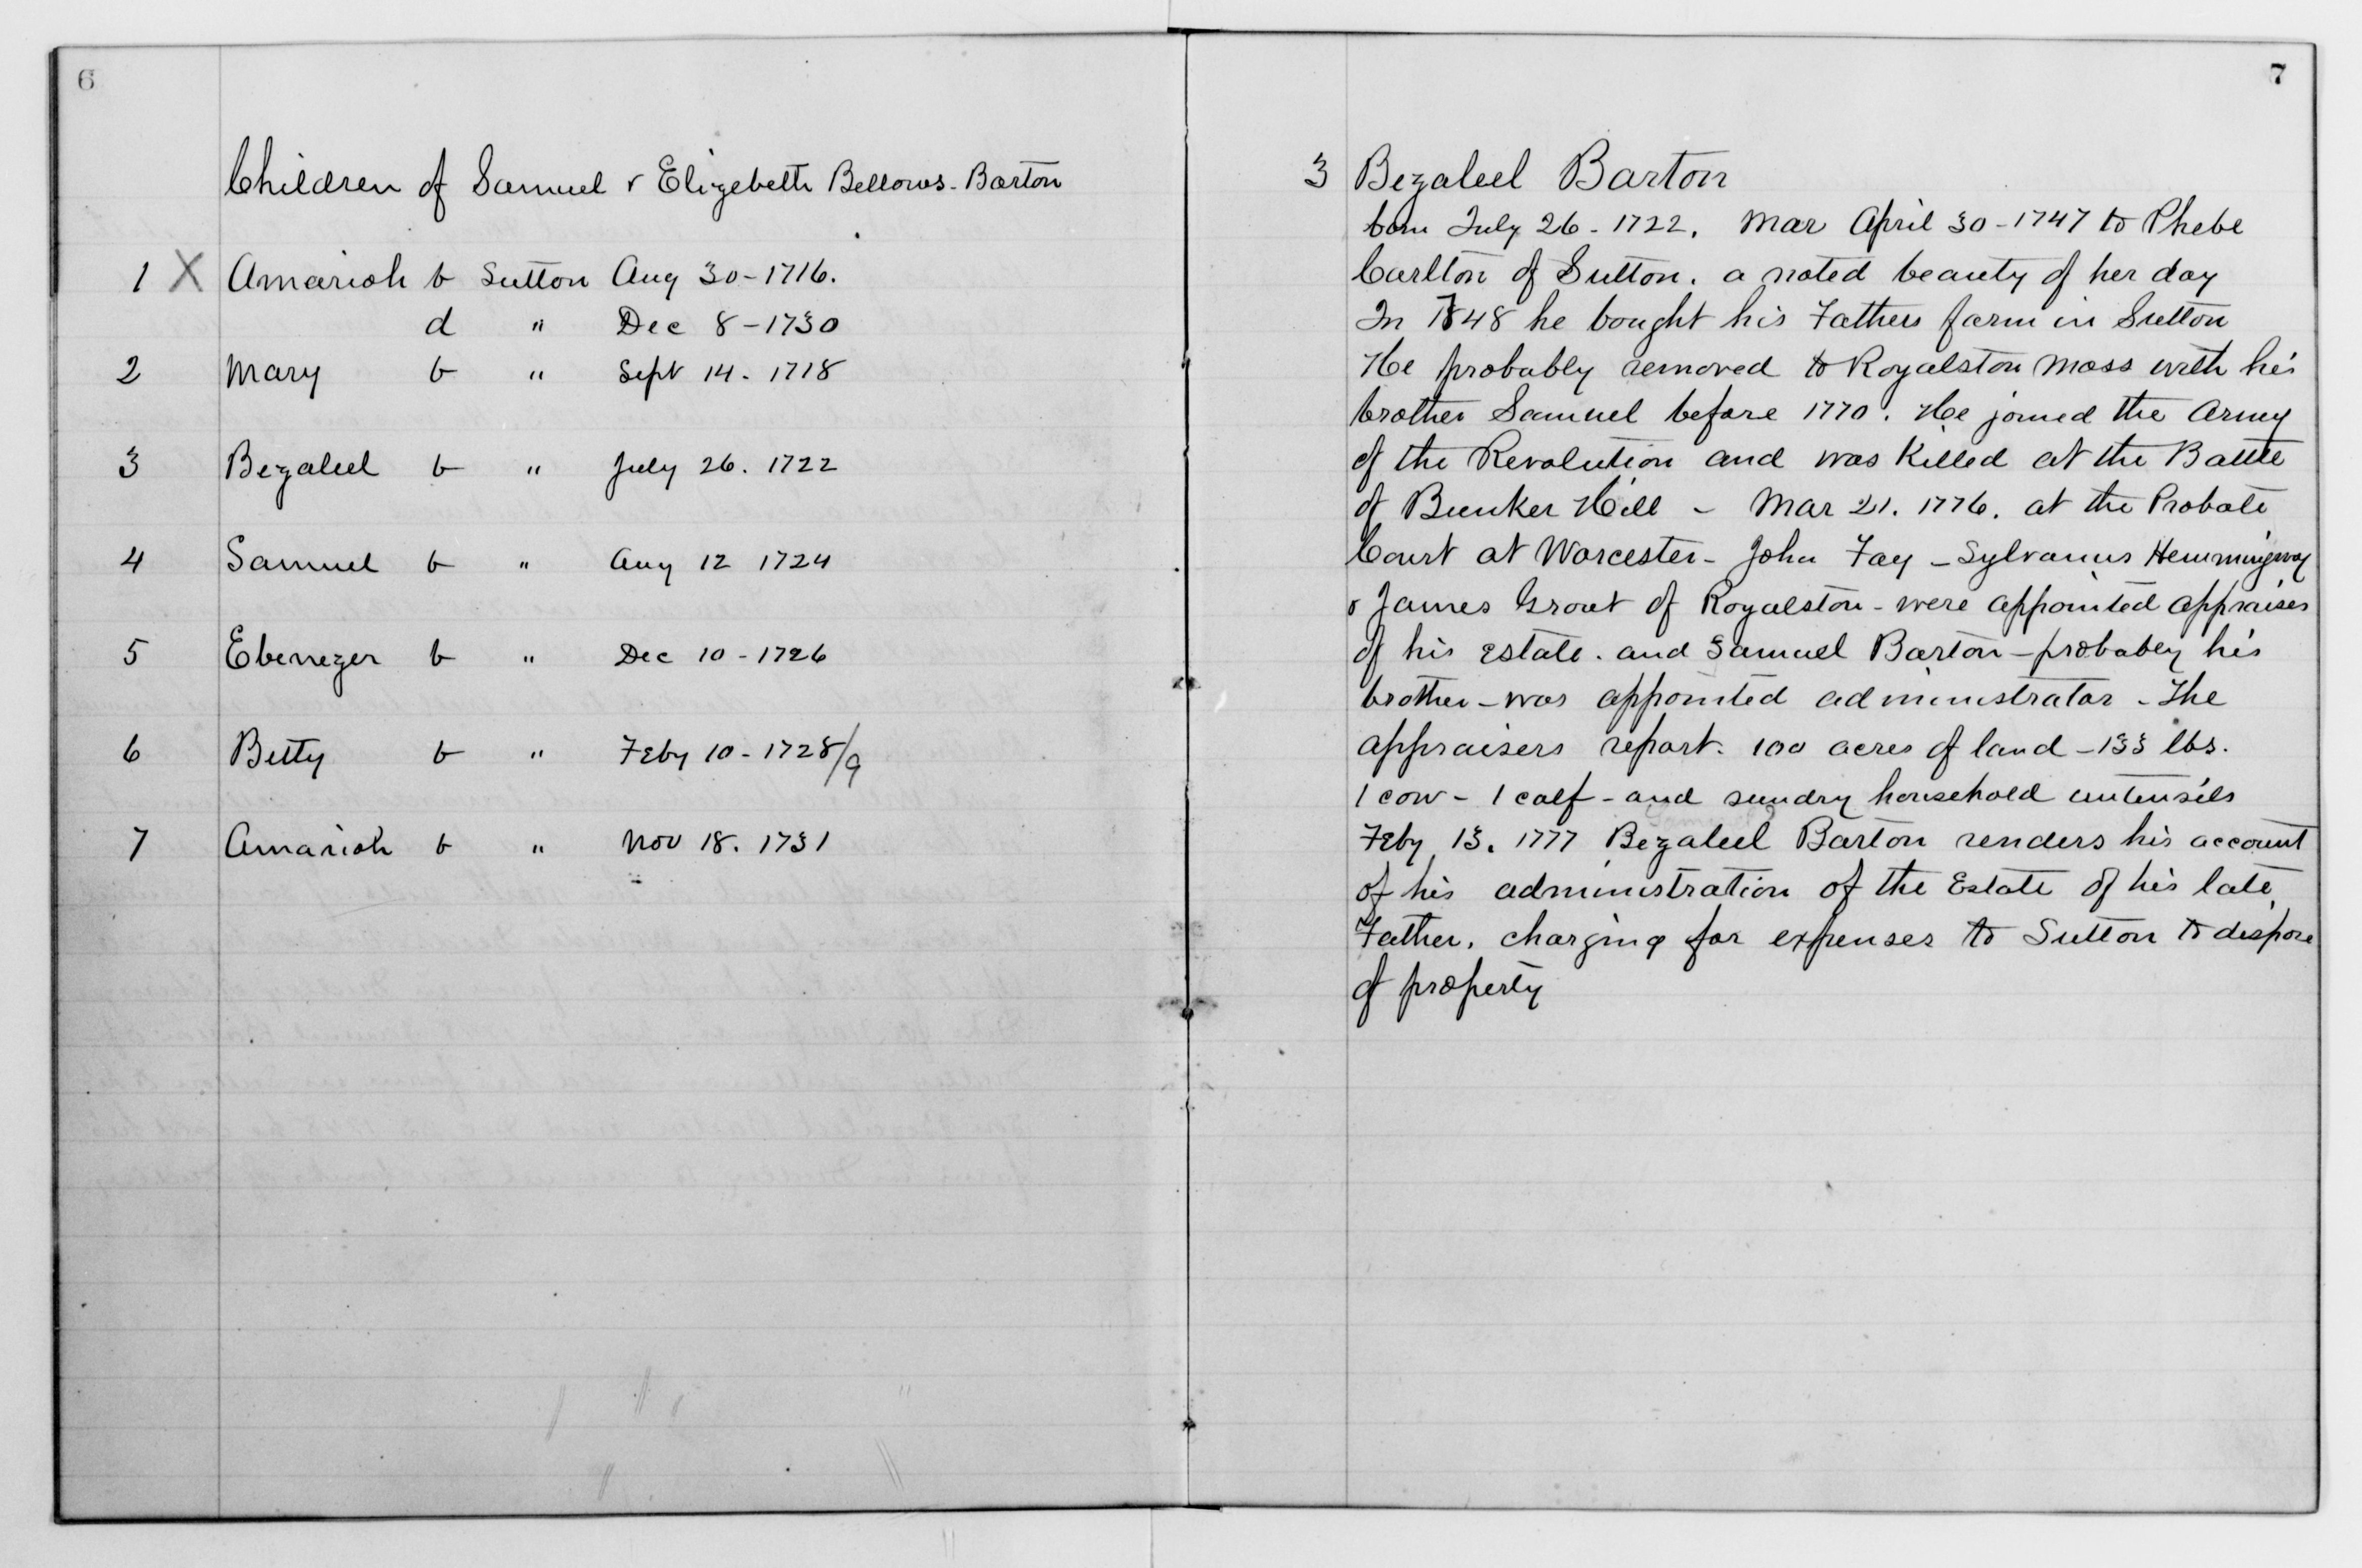 6
Children of Samuel & Elizebeth Bellows-Barton
1 X Amariah b Sutton Aug 30-1716.
d " Dec 8-1730
2 Mary b " Sept 14. 1718
3 Bezaleel b " July 26. 1722
4 Samuel b " Aug 12 1724
5 Ebenezer b " Dec 10-1726
6 Betty b " Feby 10-1728/9
7 Amariah b " Nov 18. 1731
7
3 Bezaleel Barton
born July 26-1722. Mar April 30-1747 to Phebe
Carlton of Sutton. a noted beauty of her day
In 1748 he bought his Fathers farm in Sutton
He probably removed to Royalston Mass with his
brother Samuel before 1770. He joined the Army
of the Revolution and was Killed at the Battle
of Bunker Hill - Mar 21. 1776. at the Probate
Court at Worcester - John Fay - Sylvanus Hemmingway
& James Grout of Royalston - were appointed appraises
of his Estate. and Samuel Barton - probabey his
brother - was appointed administrator - The
appraisers report. 100 acres of land - 133 lbs.
1 cow - 1 calf - and sundry household untensils
Feby 13. 1777 Bezaleel Barton renders his account
of his administration of the Estate of his late
Father. charging for expenses to Sutton to dispose
of property